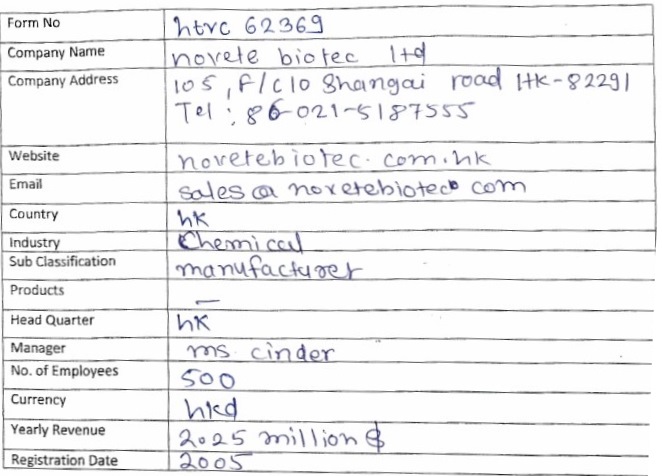 Form No htrc 62369
Company Name novete biotec ltd
Company Address 105, F/C10 Shangai road HK-82291
Tel : 86-021-5187555
Website novetebiotec.com.hk
Email sales@novetebiotec.com
Country hk
Industry Chemical
Sub Classification manufacturer
Products –
Head Quarter hk
Manager ms. cinder
No. of Employees 500
Currency hkd
Yearly Revenue 2.025 million $
Registration Date 2005